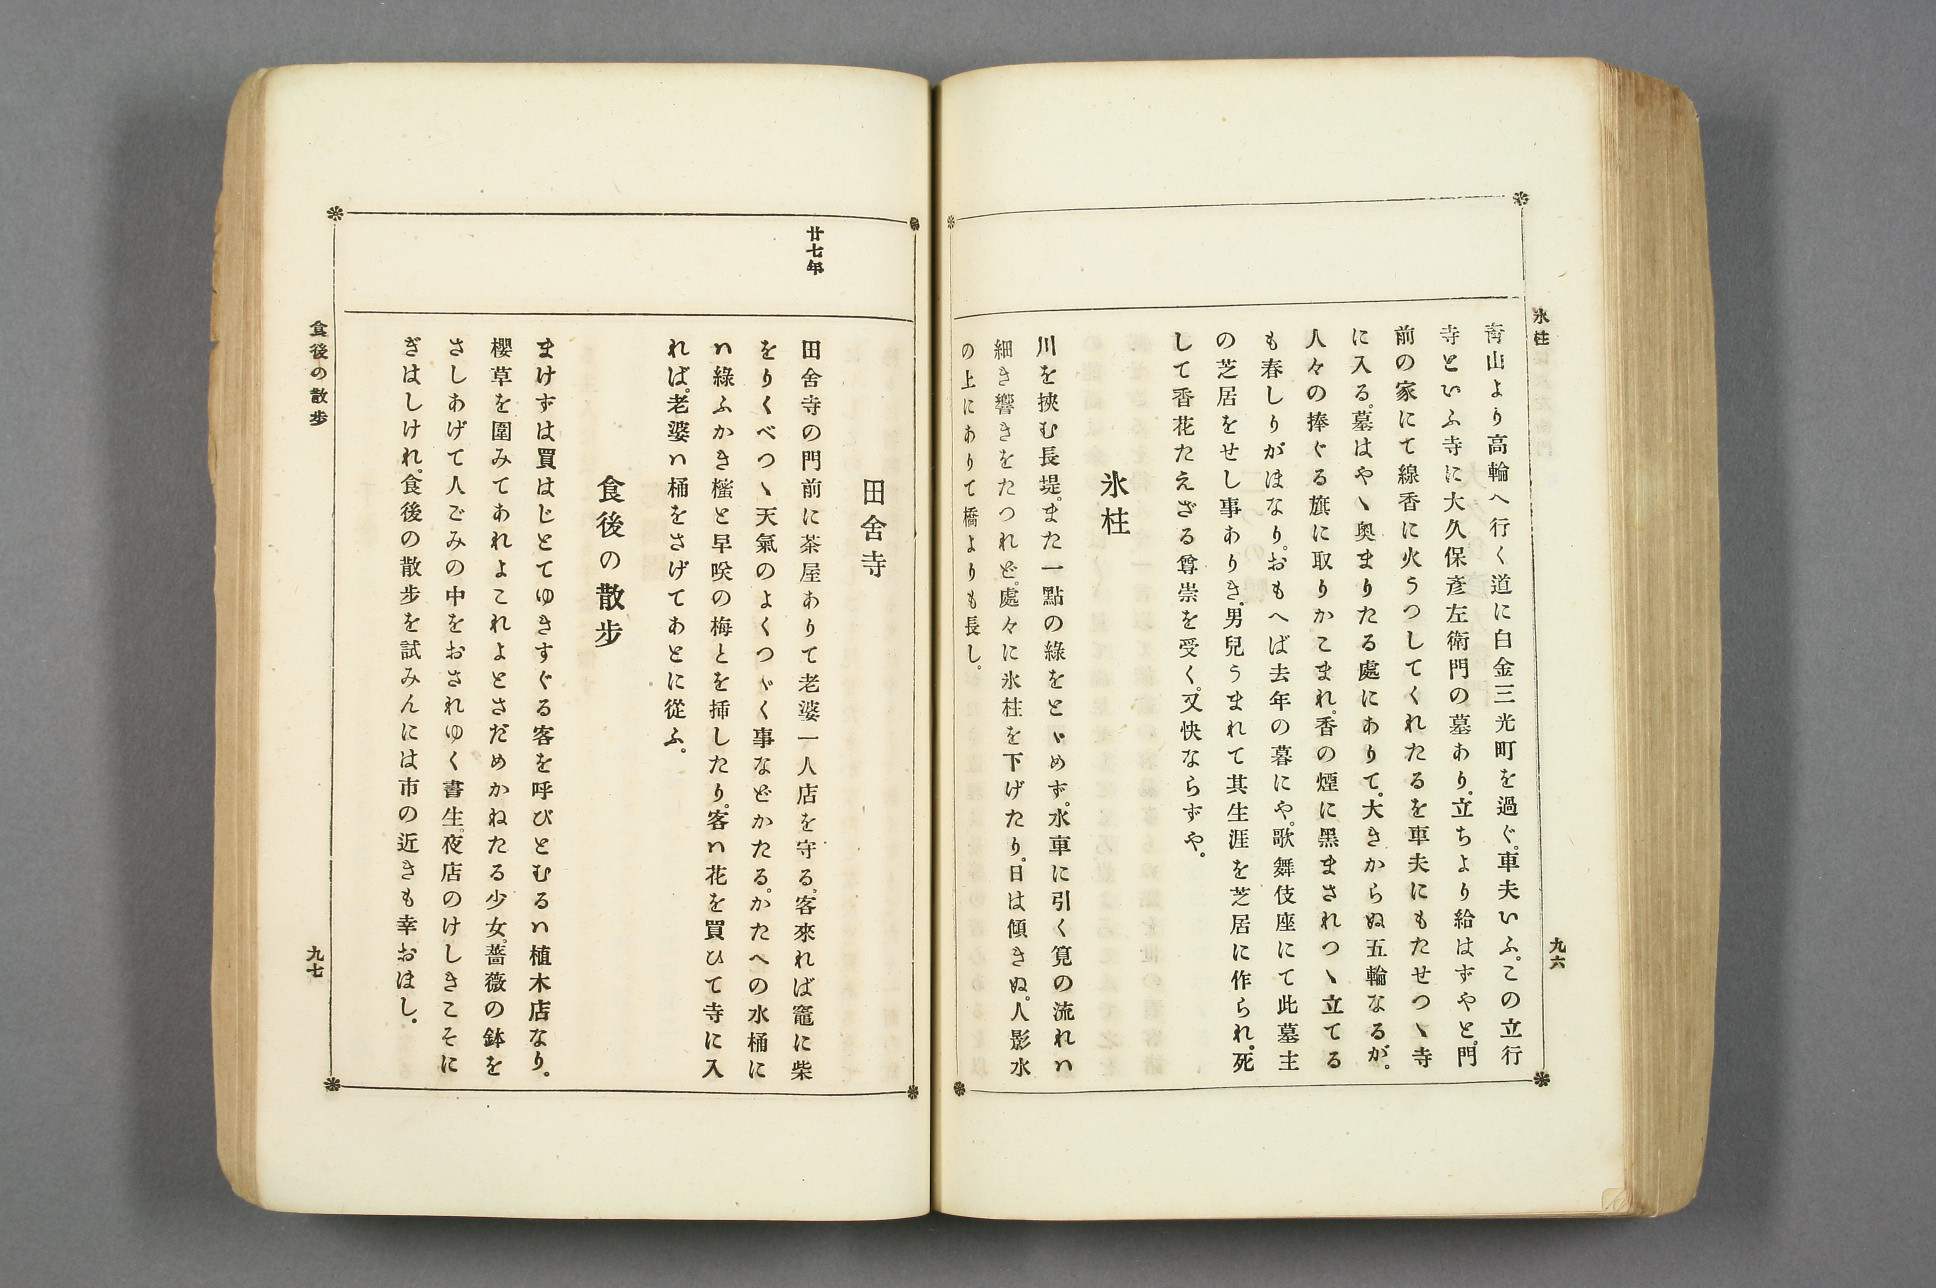 氷柱
九六
靑山より高輪へ行く道に白金三光町を過ぐ。車夫いふ。この立行
寺といふ寺に大久保彦左衛門の墓あり。立ちより給はずやと。門
前の家にて線香に火うつしてくれたるを車夫にもたせつヽ寺
に入る。墓はやヽ奧まりたる處にありて。大きからぬ五輪なるが。
人々の捧ぐる旗に取りかこまれ。香の煙に黑まされつヽ立てる
も春しりがほなり。おもへば去年の暮にや。歌舞伎座にて此墓主
の芝居をせし事ありき。男兒うまれて其生涯を芝居に作られ。死
して香花たえざる尊崇を受く。又快ならずや。
氷柱
川を挾む長堤。また一點の綠をとヾめず。水車に引く筧の流れハ
細き響きをたつれど。處々に氷柱を下げたり。日は傾きぬ。人影水
の上にありて橋よりも長し。
廿七年
田舍寺
田舍寺の門前に茶屋ありて老婆一人店を守る。客來れば竈に柴
をりくべつヽ天氣のよくつヾく事などかたる。かたへの水桶に
ハ綠ふかき樒と早咲の梅とを挿したり。客ハ花を買ひて寺に入
れば。老婆ハ桶をさげてあとに從ふ。
食後の散步
まけずは買はじとてゆきすぐる客を呼びとむるハ植木店なり。
櫻草を圍みてあれよこれよとさだめかねたる少女。薔薇の鉢を
さしあげて人ごみの中をおされゆく書生。夜店のけしきこそに
ぎはしけれ。食後の散步を試みんには市の近きも幸おはし。
食後の散步
九七